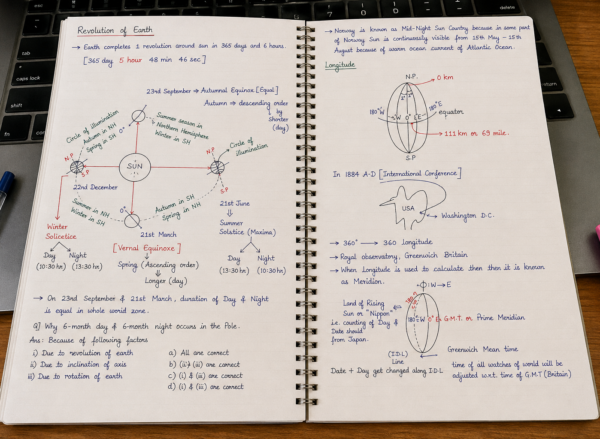 Revolution of Earth
→ Earth completes 1 revolution around sun in 365 days and 6 hours.
[365 day 5 hour 48 min 46 sec]
23rd September → Autumnal Equinox [Equal]
Autumn → descending order
by
shorter
(day)
Circle of illumination
Autumn in NH
Spring in SH
0°
Summer season in
Northern Hemisphere
Winter in SH
Circle of
illumination
N.P.
S.P
SUN
N.P.
S.P
22nd December
Summer in NH
Winter in SH
Autumn in SH
Spring in NH
21st June
Summer
Solstice (Maxima)
Day
(13:30hr)
Night
(10:30hr)
0°
21st March
Winter
Solicetice
Day
(10:30hr)
Night
(13:30hr)
[Vernal Equinoxe]
Spring (Ascending order)
Longer (day)
→ On 23rd September & 21st March, duration of Day & Night
is equal in whole world zone.
Q] Why 6-month day & 6-month night occurs in the Pole.
Ans: Because of following factors
i) Due to revolution of earth
ii) Due to inclination of axis
iii) Due to rotation of earth
a) All one correct
b) (ii) & (iii) one correct
c) (i) & (iii) one correct
d) (i) & (iii) one correct
→ Norway is known as Mid-Night Sun Country because in some part
of Norway Sun is continuously visible from 15th May – 15th
August because of warm ocean current of Atlantic Ocean.
Longitude
N.P.
0 km
180°W
W 0° E
180°E
equator
111 km or 69 mile.
S.P
In 1884 A.D [International Conference]
USA
Washington D.C.
→ 360° → 360 Longitude
→ Royal observatory, Greenwich Britain
→ When Longitude is used to calculate then then it is known
as Meridion.
W→E
Land of Rising
Sun or "Nippon"
i.e. counting of Day &
Date should
from Japan.
180°W 0° E G.M.T. or Prime Meridian
(I.D.L)
Line
Greenwich Mean time
time of all watches of world will be
adjusted w.r.t. time of G.M.T (Britain)
Date + Day get changed along I.D.L
caps lock
shift
control